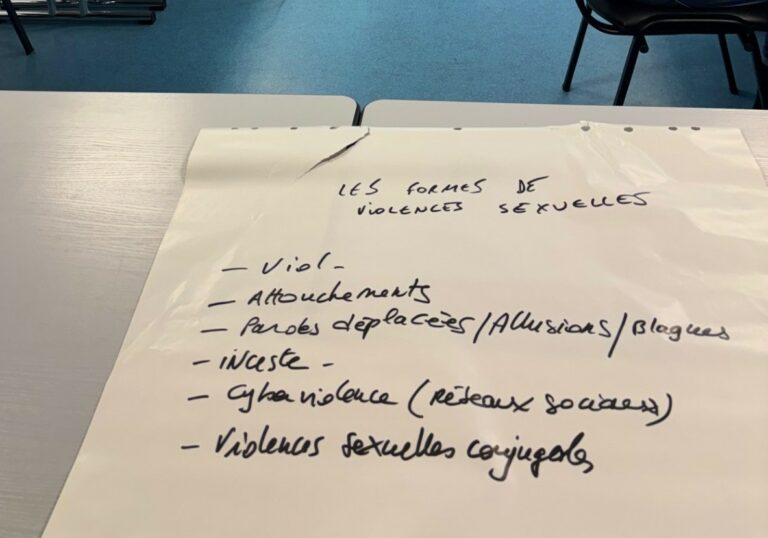 LES FORMES DE
VIOLENCES SEXUELLES
- Viol -
- Attouchements
- Paroles déplacées / Allusions / Blagues
- inceste -
- Cyberviolence (Réseaux sociaux)
- Violences sexuelles conjugales